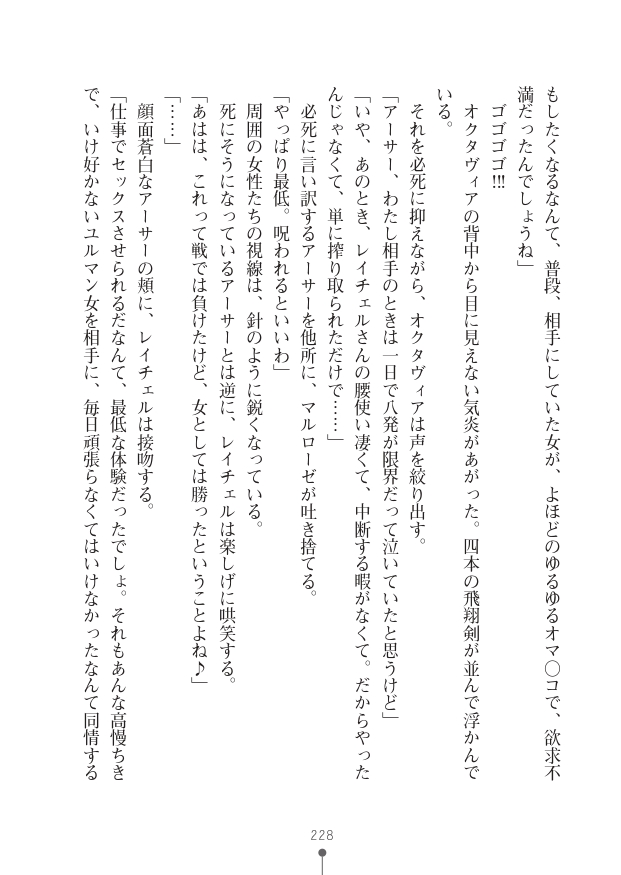 もしたくなるなんて、普段、相手にしていた女が、よほどのゆるゆるオマ〇コで、欲求不
満だったんでしょうね」
ゴゴゴゴ!!!
オクタヴィアの背中から目に見えない気炎があがった。四本の飛翔剣が並んで浮かんで
いる。
それを必死に抑えながら、オクタヴィアは声を絞り出す。
「アーサー、わたし相手のときは一日で八発が限界だって泣いていたと思うけど」
「いや、あのとき、レイチェルさんの腰使い凄くて、中断する暇がなくて。だからやった
んじゃなくて、単に搾り取られただけで……」
必死に言い訳するアーサーを他所に、マルローゼが吐き捨てる。
「やっぱり最低。呪われるといいわ」
周囲の女性たちの視線は、針のように鋭くなっている。
死にそうになっているアーサーとは逆に、レイチェルは楽しげに哄笑する。
「あはは、これって戦では負けたけど、女としては勝ったということよね♪」
「……」
顔面蒼白なアーサーの頬に、レイチェルは接吻する。
「仕事でセックスさせられるだなんて、最低な体験だったでしょ。それもあんな高慢ちき
で、いけ好かないユルマン女を相手に、毎日頑張らなくてはいけなかったなんて同情する
228